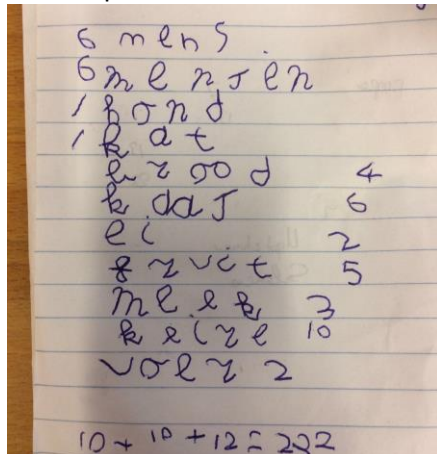 6 mens.
6 mensen
1 hond
1 kat
brood 4
kaas 6
ei 2
fruct 5
melk 3
voer 2
10 + 10 + 12 = 222